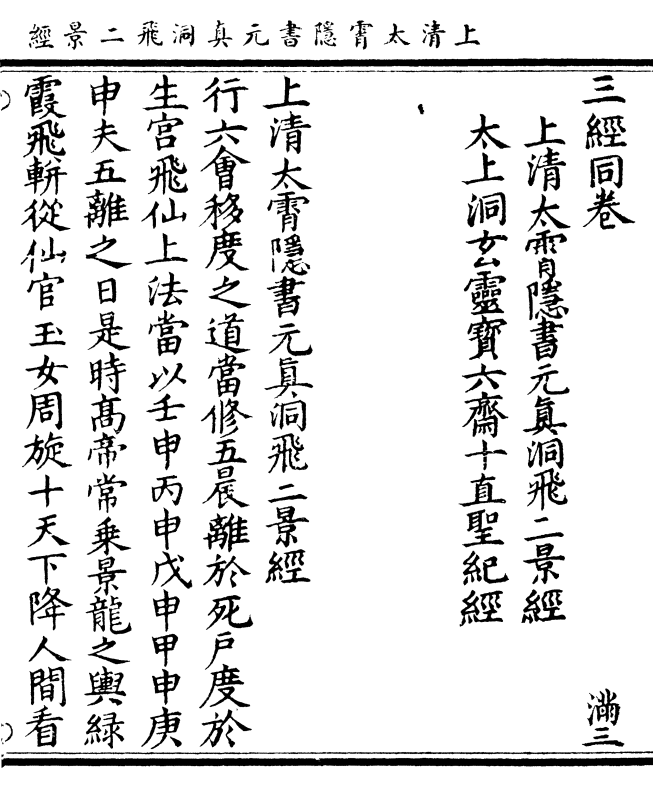 上清太霄隱書元真洞飛二景經
三經同卷
滿三
上清太霄隱書元真洞飛二景經
太上洞玄靈寶六齋十直聖紀經
上清太霄隱書元真洞飛二景經
行六會移度之道當修五晨離於死戶度於
生宮飛仙上法當以壬申丙申戊申甲申庚
申夫五離之日是時高帝常乗景龍之輿緑
霞飛軿從仙官玉女周旋十天下降人間看